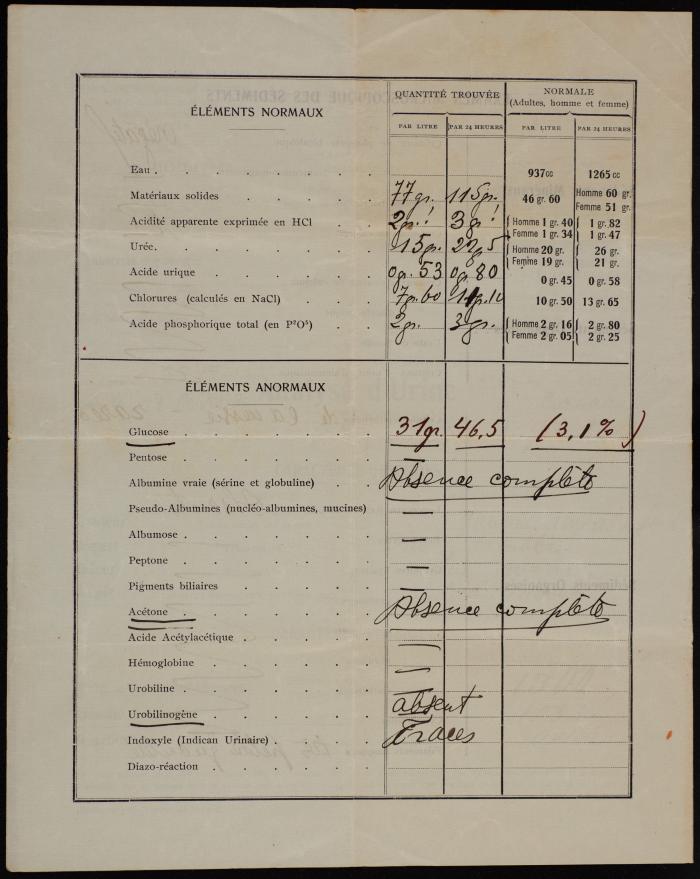 ÉLÉMENTS NORMAUX
QUANTITÉ TROUVÉE
NORMALE
(Adultes, homme et femme)
PAR LITRE PAR 24 HEURES PAR LITRE PAR 24 HEURES
Eau . . . . . . . 937cc 1265 cc
Matériaux solides . . . . 77gr. 115gr. 46 gr. 60 Homme 60 gr. Femme 51 gr.
Acidité apparente exprimée en HCl . . 2gr.! 3gr! Homme 1 gr. 40 1 gr. 82
Femme 1 gr. 34 1 gr. 47
Urée. . . . . . . 15gr. 22g,5 Homme 20 gr. 26 gr.
Femme 19 gr. 21 gr.
Acide urique . . . . . 0gr. 53 0g. 80 0 gr. 45 0 gr. 58
Chlorures (calculés en NaCl) . . . 7gr.60 11gr.10 10 gr. 50 13 gr. 65
Acide phosphorique total (en P²O⁵) . . 2gr. 3gr. Homme 2 gr. 16 2 gr. 80
Femme 2 gr. 05 2 gr. 25
ÉLÉMENTS ANORMAUX
Glucose . . . . . . 31gr. 46,5 (3,1%)
Pentose . . . . . . —
Albumine vraie (sérine et globuline) . . Absence complète
Pseudo-Albumines (nucléo-albumines, mucines) —
Albumose . . . . . . —
Peptone . . . . . . —
Pigments biliaires . . . . . —
Acétone . . . . . . Absence complète
Acide Acétylacétique . . . . —
Hémoglobine . . . . . —
Urobiline . . . . . . —
Urobilinogène . . . . . absent
Indoxyle (Indican Urinaire) . . . . Traces
Diazo-réaction . . . . .